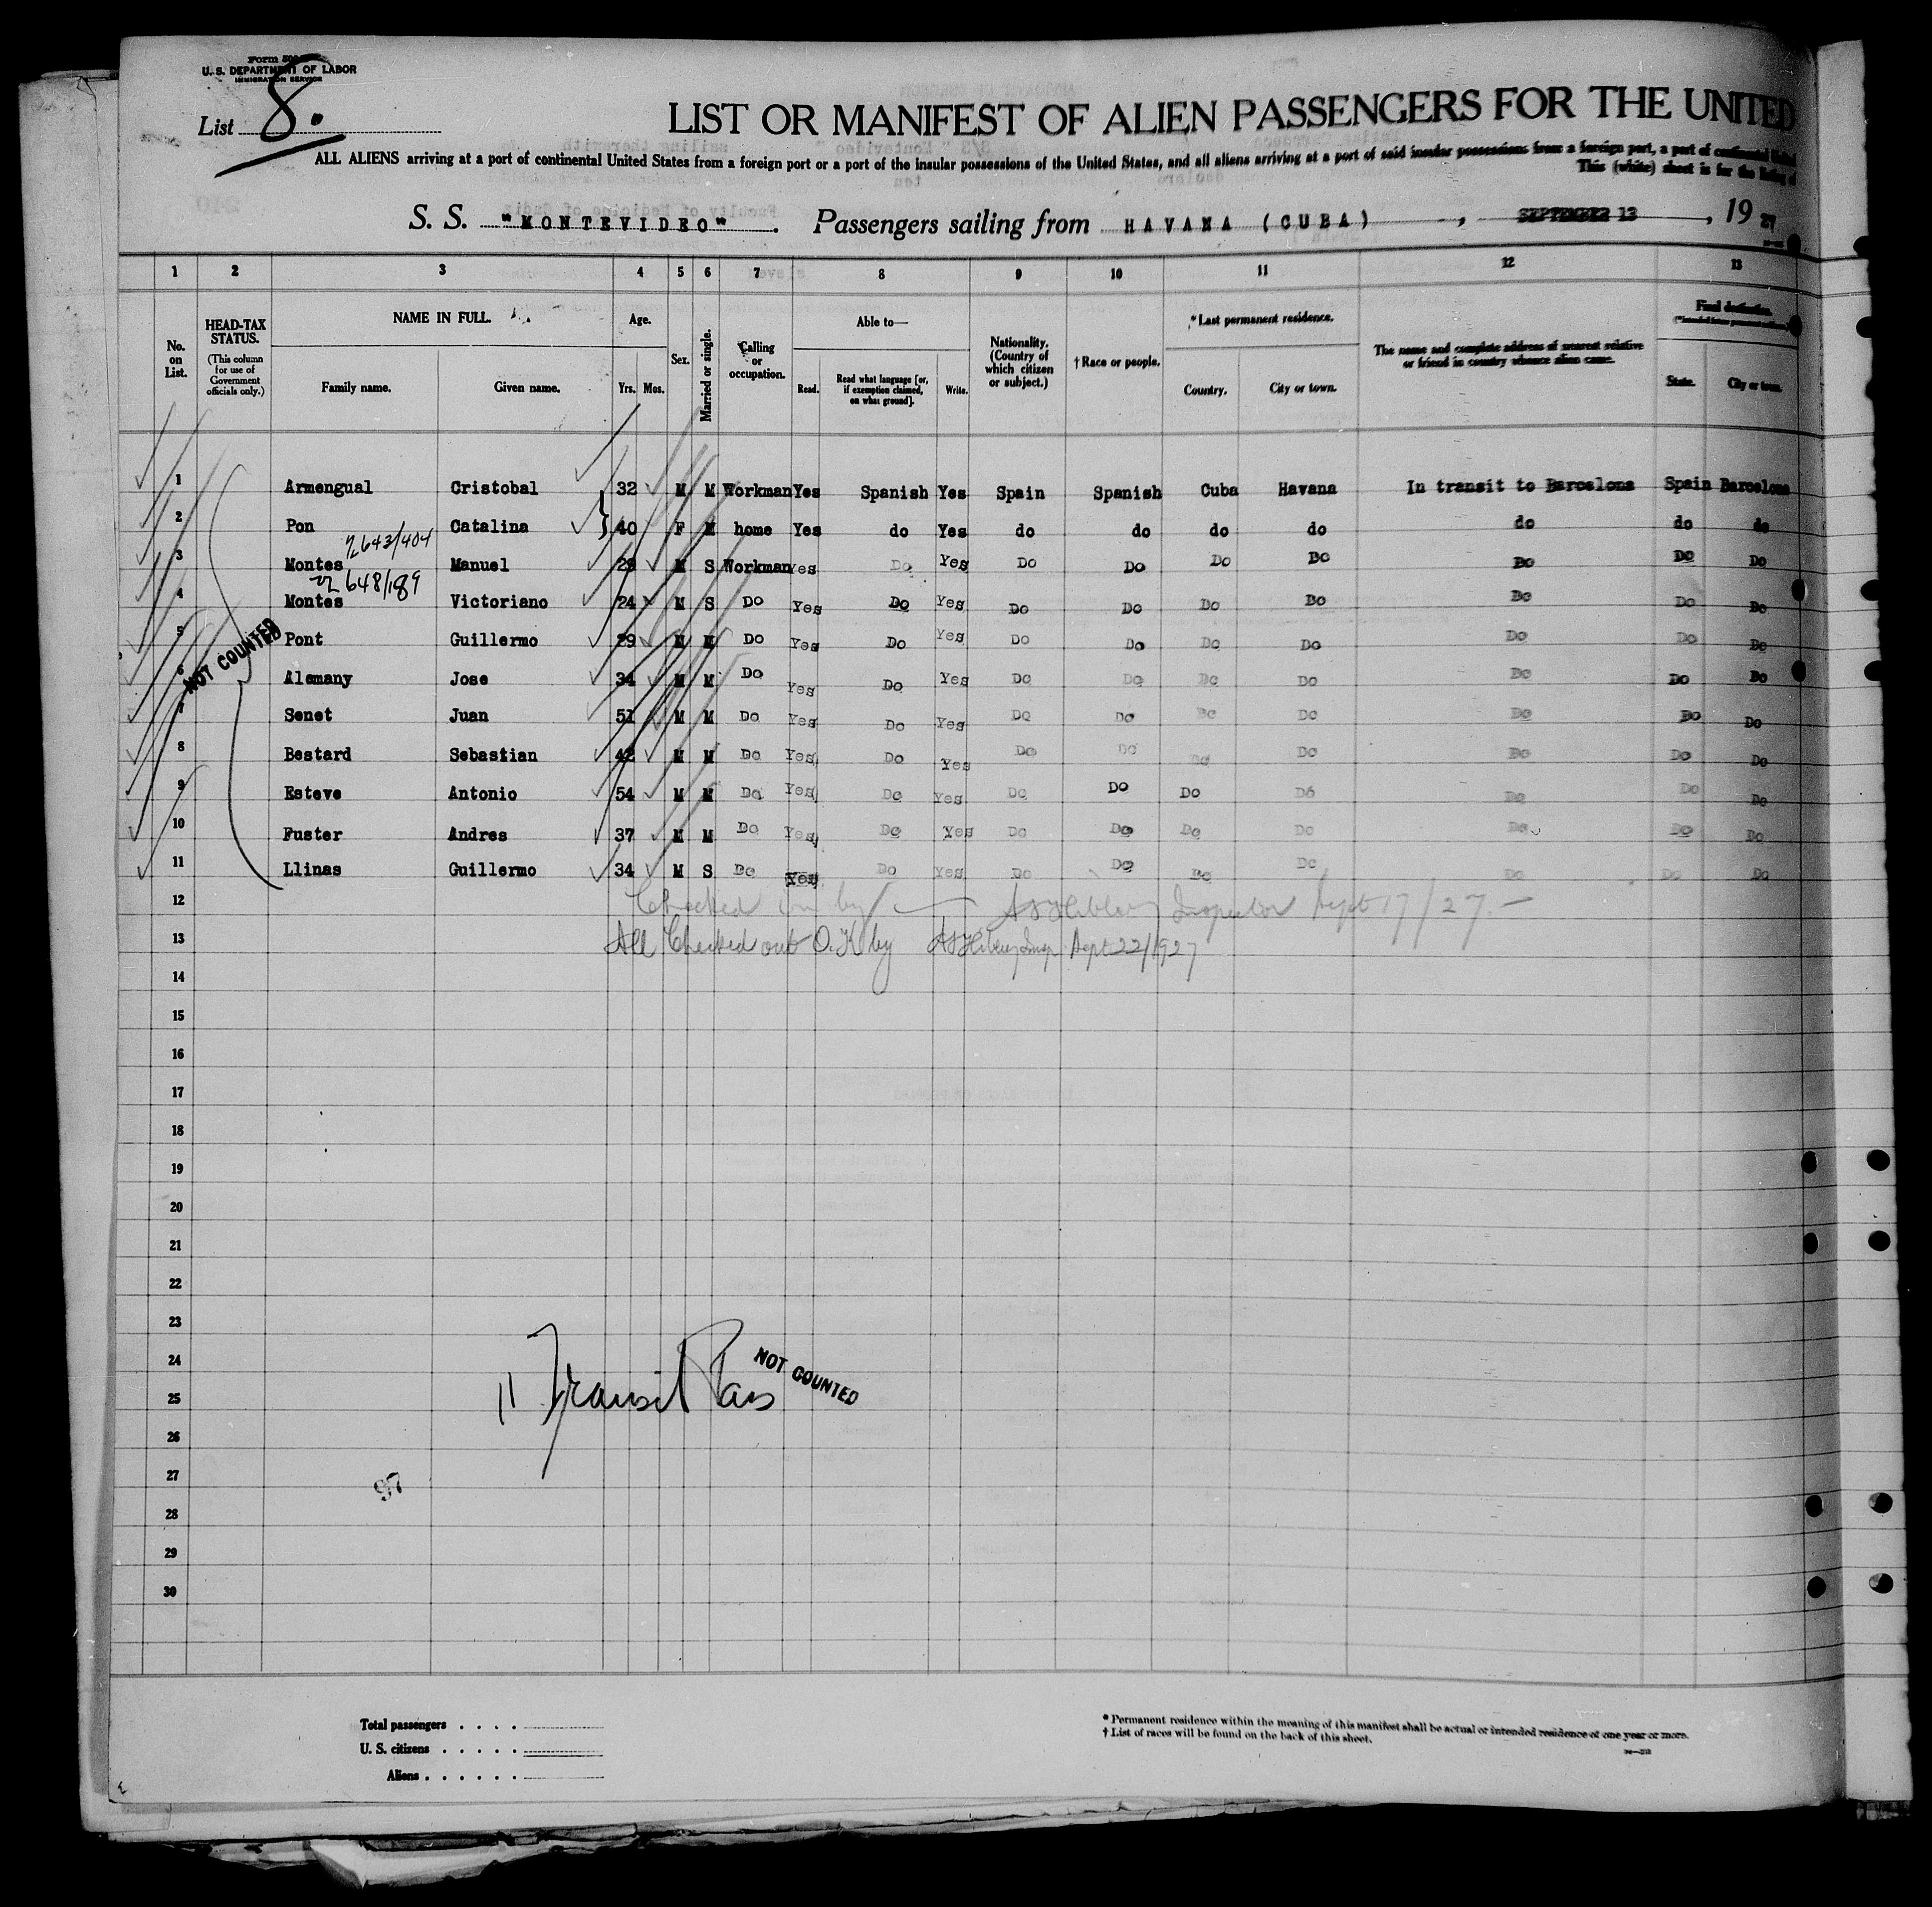 Form 500
U. S. DEPARTMENT OF LABOR
IMMIGRATION SERVICE
List 8.
LIST OR MANIFEST OF ALIEN PASSENGERS FOR THE UNITED
ALL ALIENS arriving at a port of continental United States from a foreign port or a port of the insular possessions of the United States, and all aliens arriving at a port of said insular possessions from a foreign port, a port of continental United
This (white) sheet is for the listing of
S. S. "MONTEVIDEO". Passengers sailing from HAVANA (CUBA), SEPTEMBER 13, 1927
1 2 3 4 5 6 7 8 9 10 11 12 13
No. on List.
HEAD-TAX STATUS.
(This column for use of Government officials only.)
NAME IN FULL.
Family name. Given name.
Age.
Yrs. Mos.
Sex.
Married or single.
Calling or occupation.
Able to—
Read. Read what language [or, if exemption claimed, on what ground]. Write.
Nationality. (Country of which citizen or subject.)
† Race or people.
* Last permanent residence.
Country. City or town.
The name and complete address of nearest relative or friend in country whence alien came.
Final destination.
State. City or town.
1 Armengual Cristobal 32 M M Workman Yes Spanish Yes Spain Spanish Cuba Havana In transit to Barcelona Spain Barcelona
2 Pon Catalina 40 F M home Yes do Yes do do do do do do do
643/404
3 Montes Manuel 29 M S Workman Yes Do Yes Do Do Do Do Do Do Do
648/189
4 Montes Victoriano 24 M S Do Yes Do Yes Do Do Do Do Do Do Do
5 Pont Guillermo 29 M M Do Yes Do Yes Do Do Do Do Do Do Do
NOT COUNTED
6 Alemany Jose 34 M M Do Yes Do Yes Do Do Do Do Do Do Do
7 Senet Juan 51 M M Do Yes Do Yes Do Do Do Do Do Do Do
8 Bestard Sebastian 42 M M Do Yes Do Yes Do Do Do Do Do Do Do
9 Esteve Antonio 54 M M Do Yes Do Yes Do Do Do Do Do Do Do
10 Fuster Andres 37 M M Do Yes Do Yes Do Do Do Do Do Do Do
11 Llinas Guillermo 34 M S Do Yes Do Yes Do Do Do Do Do Do Do
12 Checked in by Inspector Sept 17/27.
13 All Checked out O.K by Insp Sept 22/1927
14
15
16
17
18
19
20
21
22
23
24
NOT COUNTED
25 11 Transit Pass
26
27
97
28
29
30
Total passengers . . . .
U. S. citizens . . . . .
Aliens . . . . . .
* Permanent residence within the meaning of this manifest shall be actual or intended residence of one year or more.
† List of races will be found on the back of this sheet.